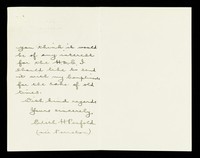 you think it would
be of any interest
for the
should like to send
it with my compliments
for the sake of old
times.
With kind regards
Yours sincerely,
H Penfield
(née